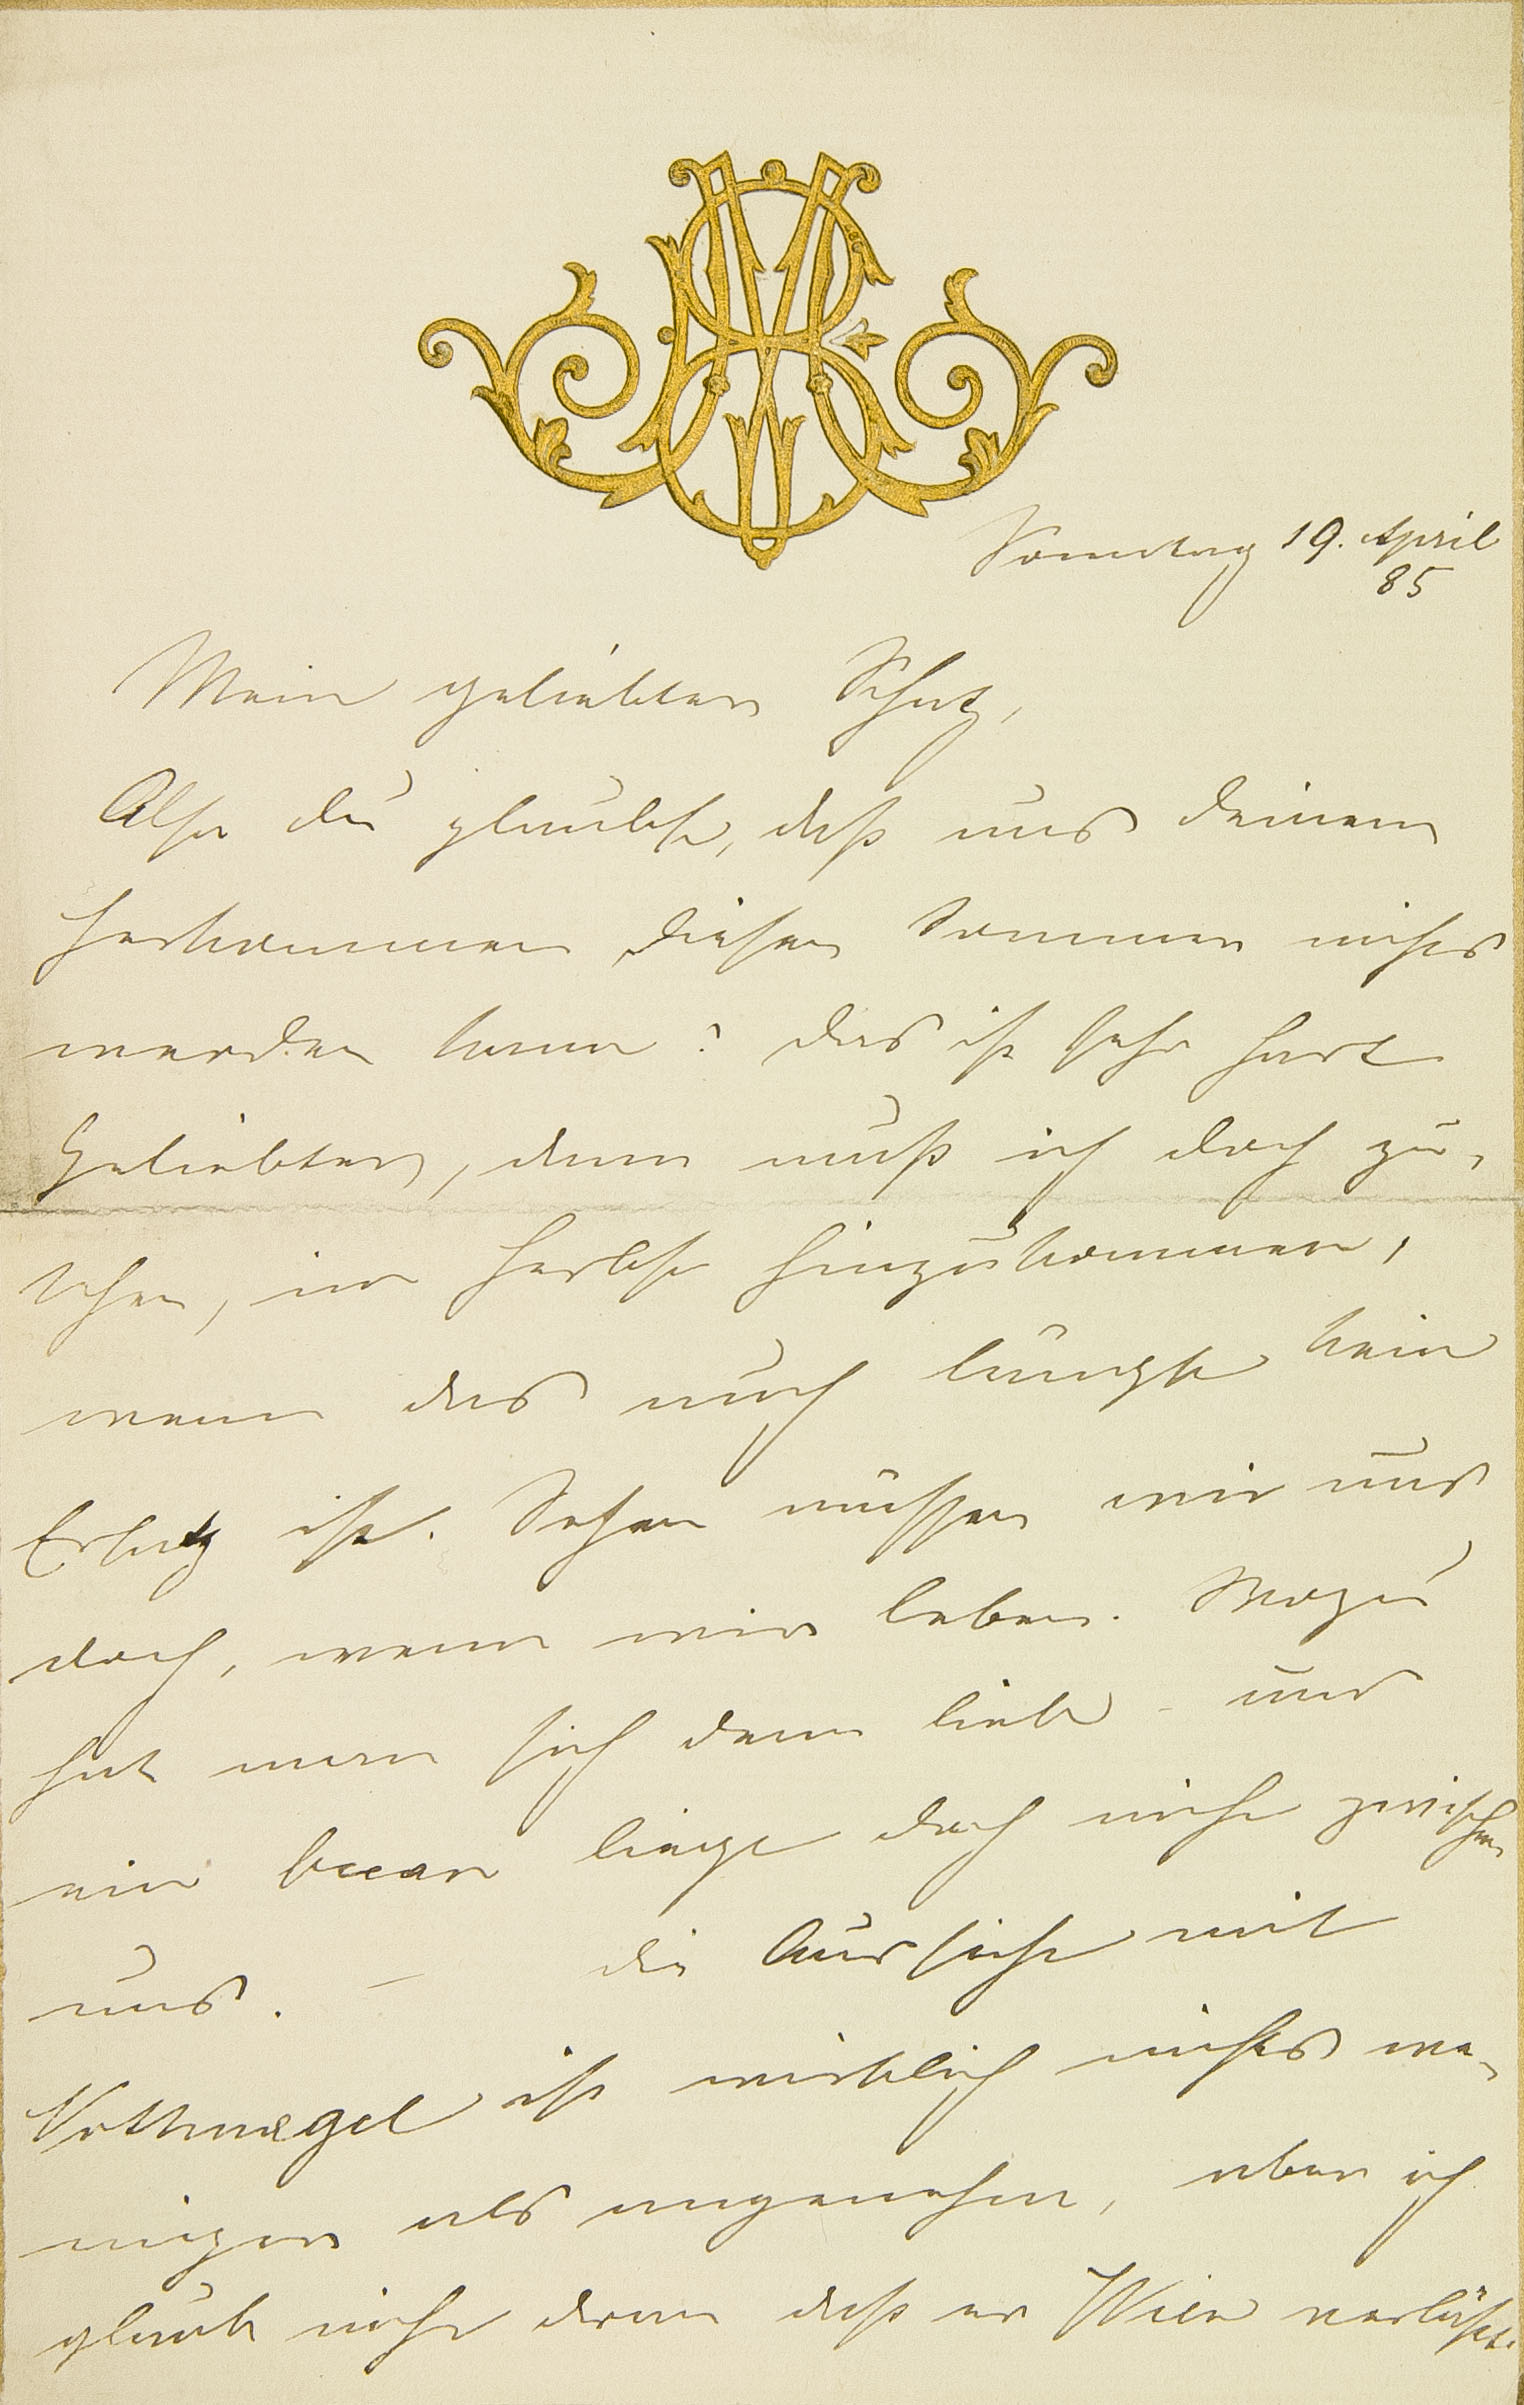 Sonntag 19. April
85
Mein geliebter Schatz,
Also du glaubst, daß aus deinem
herkommen diesen Sommer nichts
werden kann? das ist sehr hart
Geliebter, dann muß ich doch zu-
sehen, im Herbst hinzukommen,
wenn das auch längst kein
Ersatz ist. Sehen müssen wir uns
doch, wenn wir leben. Wozu
hat man sich denn lieb – und
ein Ocean liegt doch nicht zwischen
uns. – die Aussicht mit
Nothnagel ist wirklich nichts we-
niger als angenehm, aber ich
glaub nicht dran daß er Wien verläßt.